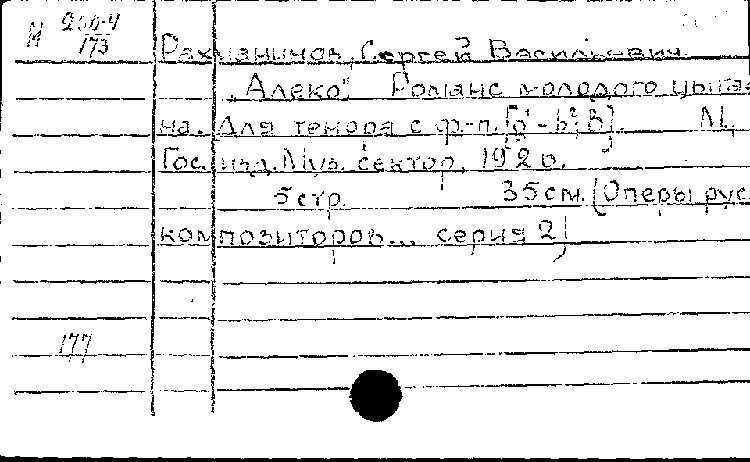 М 250-4
173
Рахманинов, Сергей Васильевич.
„Алеко". Романс молодого цыга
на. Для тенора с ф-п. [g¹-b²; B]. М.,
Гос. изд. Муз. сектор, 1926.
5 стр. 35 см. (Оперы рус.
композиторов... серия 2)
177